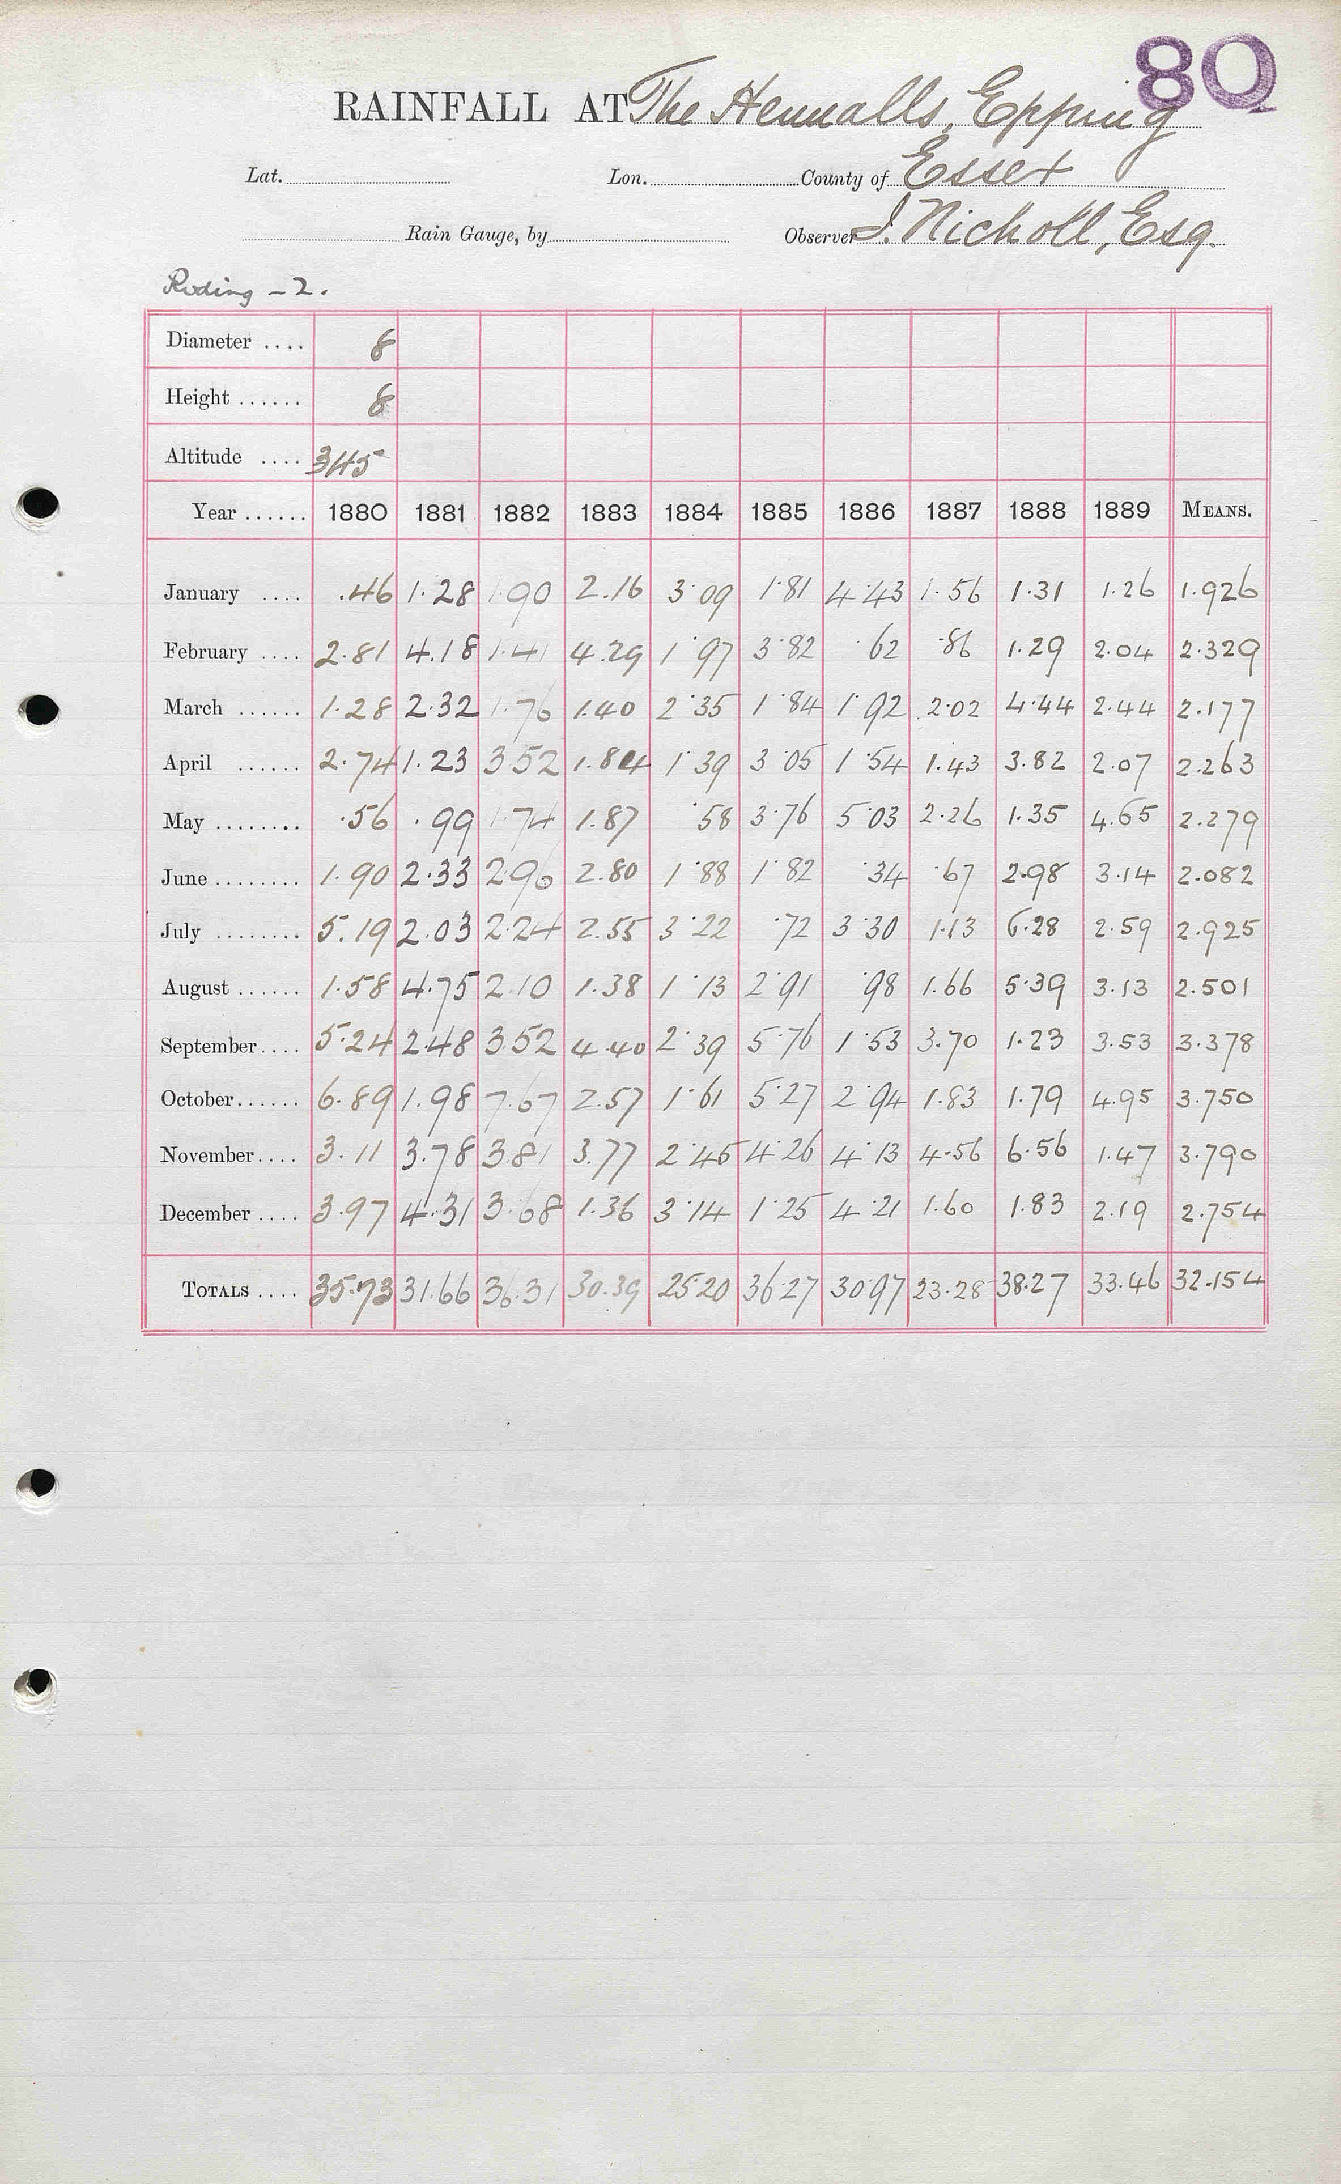 80
RAINFALL AT The Hennalls, Epping
Lat. Lon. County of Essex
Rain Gauge, by Observer I. Nicholl, Esq.
Roding – 2.
Diameter .... 8
Height ...... 8
Altitude .... 345
Year ...... 1880 1881 1882 1883 1884 1885 1886 1887 1888 1889 MEANS.
January .... .46 1.28 1.90 2.16 3.09 1.81 4.43 1.56 1.31 1.26 1.926
February .... 2.81 4.18 1.41 4.29 1.97 3.82 .62 .86 1.29 2.04 2.329
March ...... 1.28 2.32 1.76 1.40 2.35 1.84 1.92 2.02 4.44 2.44 2.177
April ...... 2.74 1.23 3.52 1.84 1.39 3.05 1.54 1.43 3.82 2.07 2.263
May ........ .56 .99 1.74 1.87 .58 3.76 5.03 2.26 1.35 4.65 2.279
June ........ 1.90 2.33 2.96 2.80 1.88 1.82 .34 .67 2.98 3.14 2.082
July ........ 5.19 2.03 2.24 2.55 3.22 .72 3.30 1.13 6.28 2.59 2.925
August ...... 1.58 4.75 2.10 1.38 1.13 2.91 .98 1.66 5.39 3.13 2.501
September.... 5.24 2.48 3.52 4.40 2.39 5.76 1.53 3.70 1.23 3.53 3.378
October...... 6.89 1.98 7.67 2.57 1.61 5.27 2.94 1.83 1.79 4.95 3.750
November.... 3.11 3.78 3.81 3.77 2.45 4.26 4.13 4.56 6.56 1.47 3.790
December .... 3.97 4.31 3.68 1.36 3.14 1.25 4.21 1.60 1.83 2.19 2.754
TOTALS .... 35.73 31.66 36.31 30.39 25.20 36.27 30.97 23.28 38.27 33.46 32.154